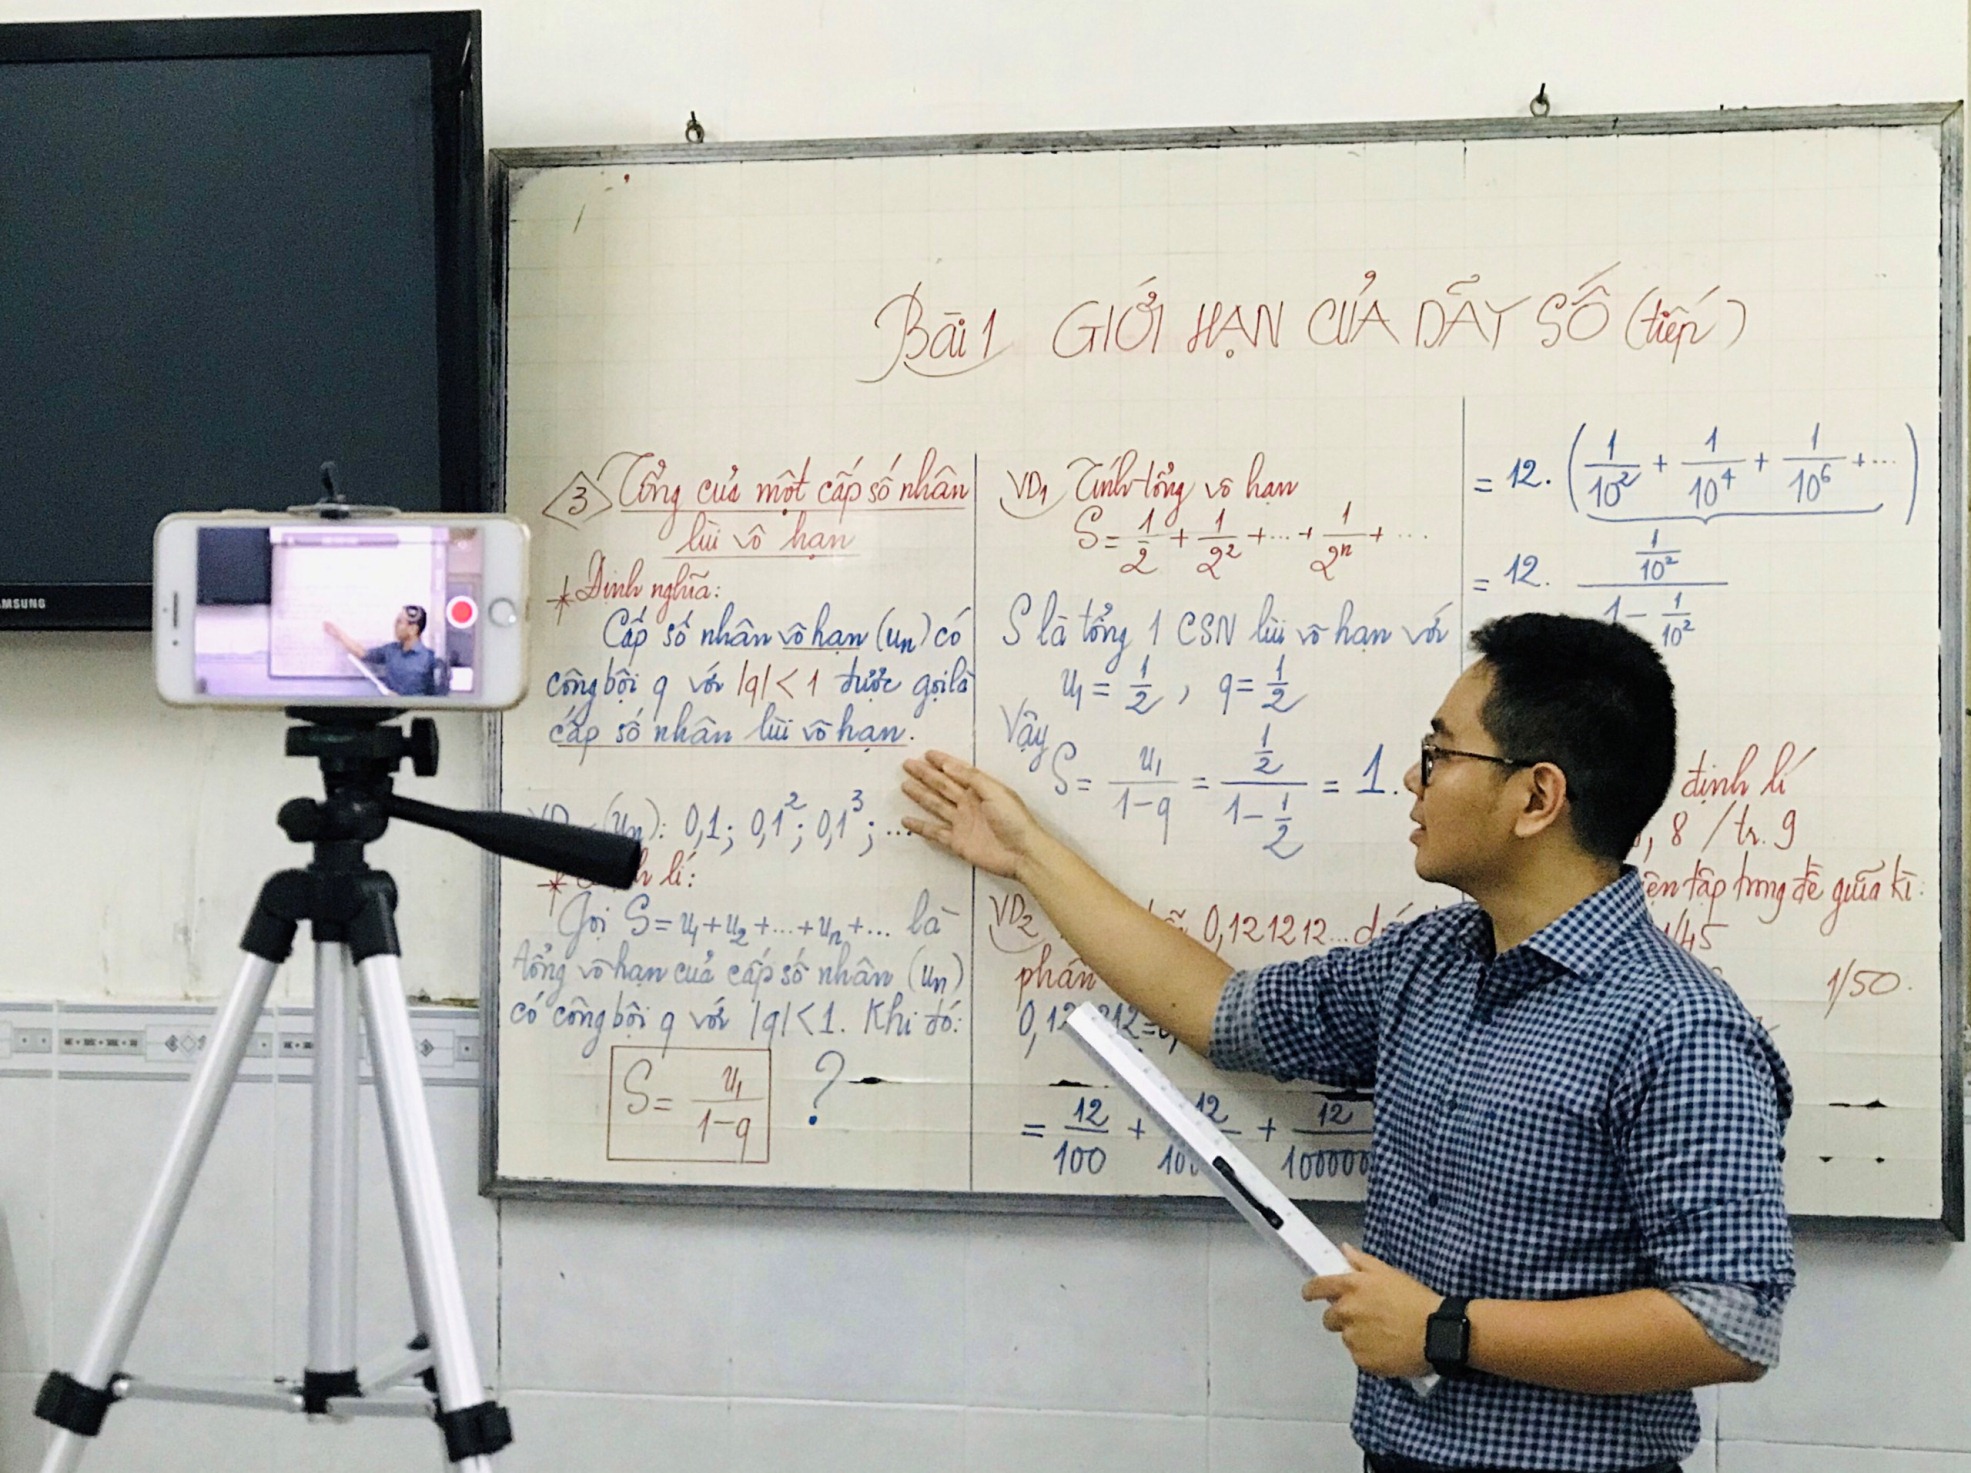 SAMSUNG
Bài 1 GIỚI HẠN CỦA DÃY SỐ (tiếp)
3 Tổng của một cấp số nhân
lùi vô hạn
* Định nghĩa:
Cấp số nhân vô hạn (un) có
công bội q với |q| < 1 được gọi là
cấp số nhân lùi vô hạn.
(un): 0,1; 0,1²; 0,1³; ...
lí:
Gọi S = u1 + u2 + ... + un + ... là
tổng vô hạn của cấp số nhân (un)
có công bội q với |q| < 1. Khi đó:
S = u1/(1-q) ?
VD1 Tính tổng vô hạn
S = 1/2 + 1/2² + ... + 1/2ⁿ + ...
S là tổng 1 CSN lùi vô hạn với
u1 = 1/2, q = 1/2
Vậy
S = u1/(1-q) = (1/2)/(1-1/2) = 1.
VD2 0,121212...
phân
= 12/100 + 12 + 12/1000000
= 12. (1/10² + 1/10⁴ + 1/10⁶ + ...)
= 12. (1/10²)/(1 - 1/10²)
định lí
8 / tr. 9
tập trong đề giữa kì:
1/45
1/50.